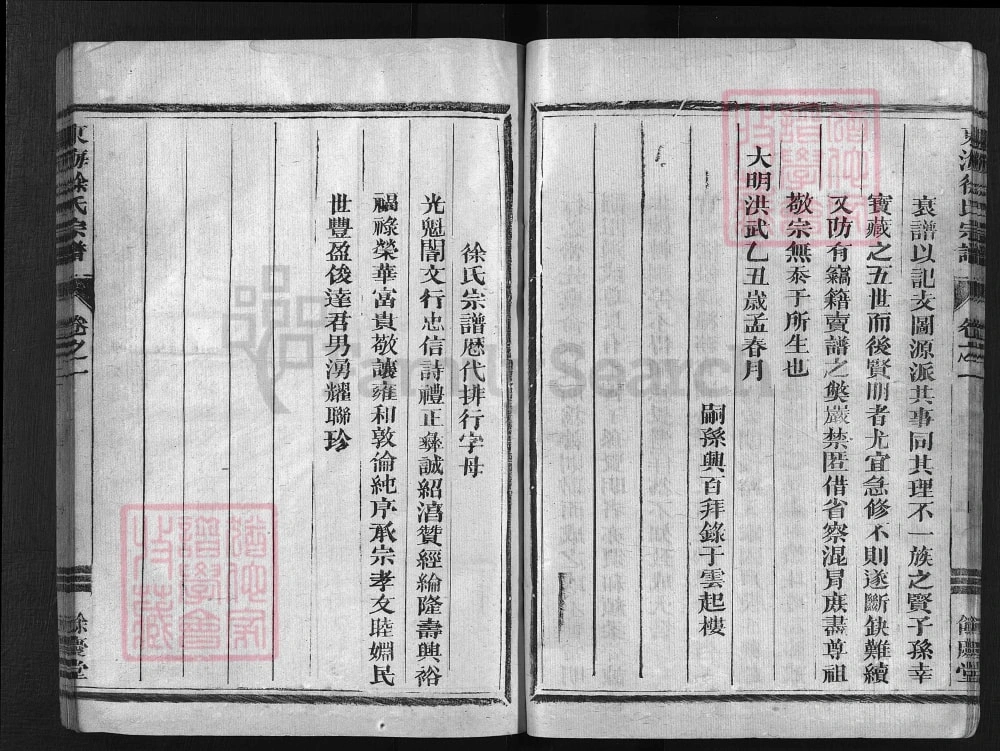 袁譜以記支圖源派共事同其理不一族之賢子孫幸
寶藏之五世而後賢明者尤宜急修不則遂斷缺難續
又防有竊籍賣譜之獘嚴禁匿借省察混冒庶盡尊祖
敬宗無忝于所生也
大明洪武乙丑歲孟春月
嗣孫興百拜錄于雲起樓
東海徐氏宗譜
卷之一
餘慶堂
徐氏宗譜歷代排行字母
光魁誾文行忠信詩禮正彝誠紹濇贊經綸隆壽興裕
福祿榮華富貴敬讓雍和敦倫純序承宗孝友睦婣民
世豐盈俊達君男湧耀聯珍
東海徐氏宗譜
卷之一
餘慶堂
FamilySearch